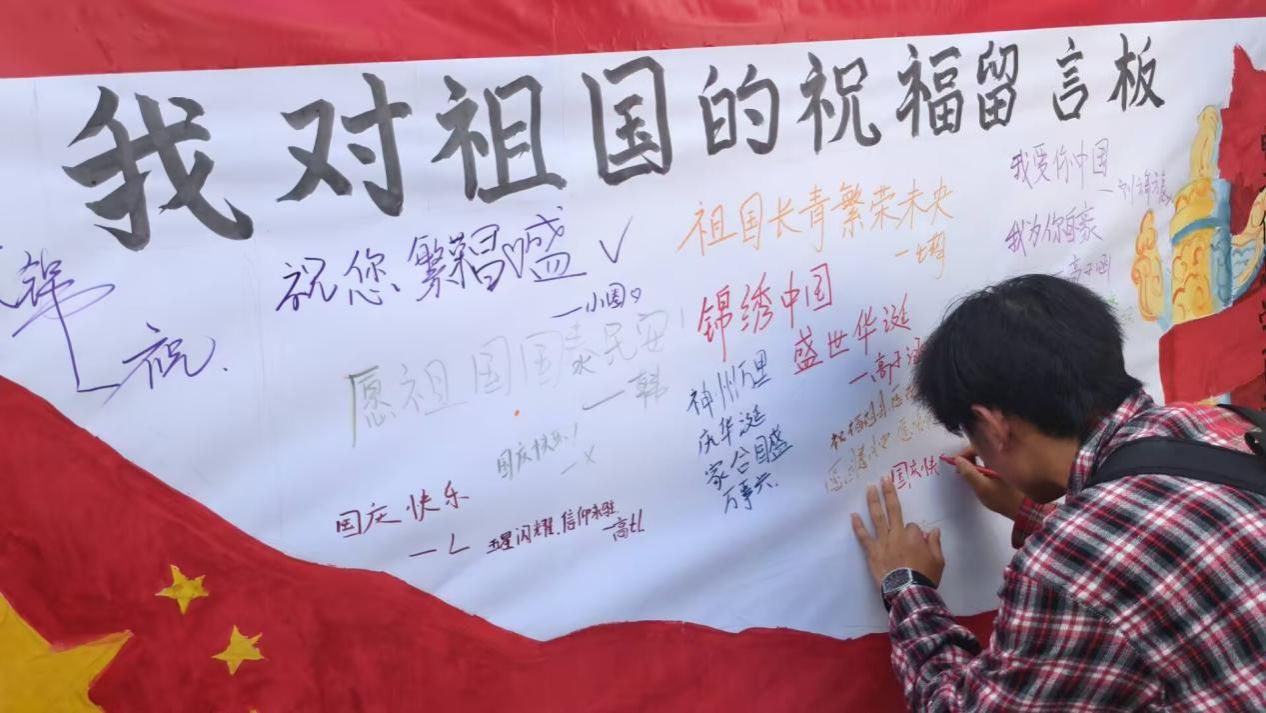 我对祖国的祝福留言板
祝您繁荣昌盛
一小周
愿祖国国泰民安!
一韩
国庆快乐!
一x
国庆快乐
一L
五星闪耀,信仰永驻
一高tL
祝.
祖国长青繁荣未央
锦绣中国
盛世华诞
一高子涵
神州万里
庆华诞
家合国盛
万事兴.
我爱你中国
我为你自豪
一高子涵
祝福祖国
国庆快